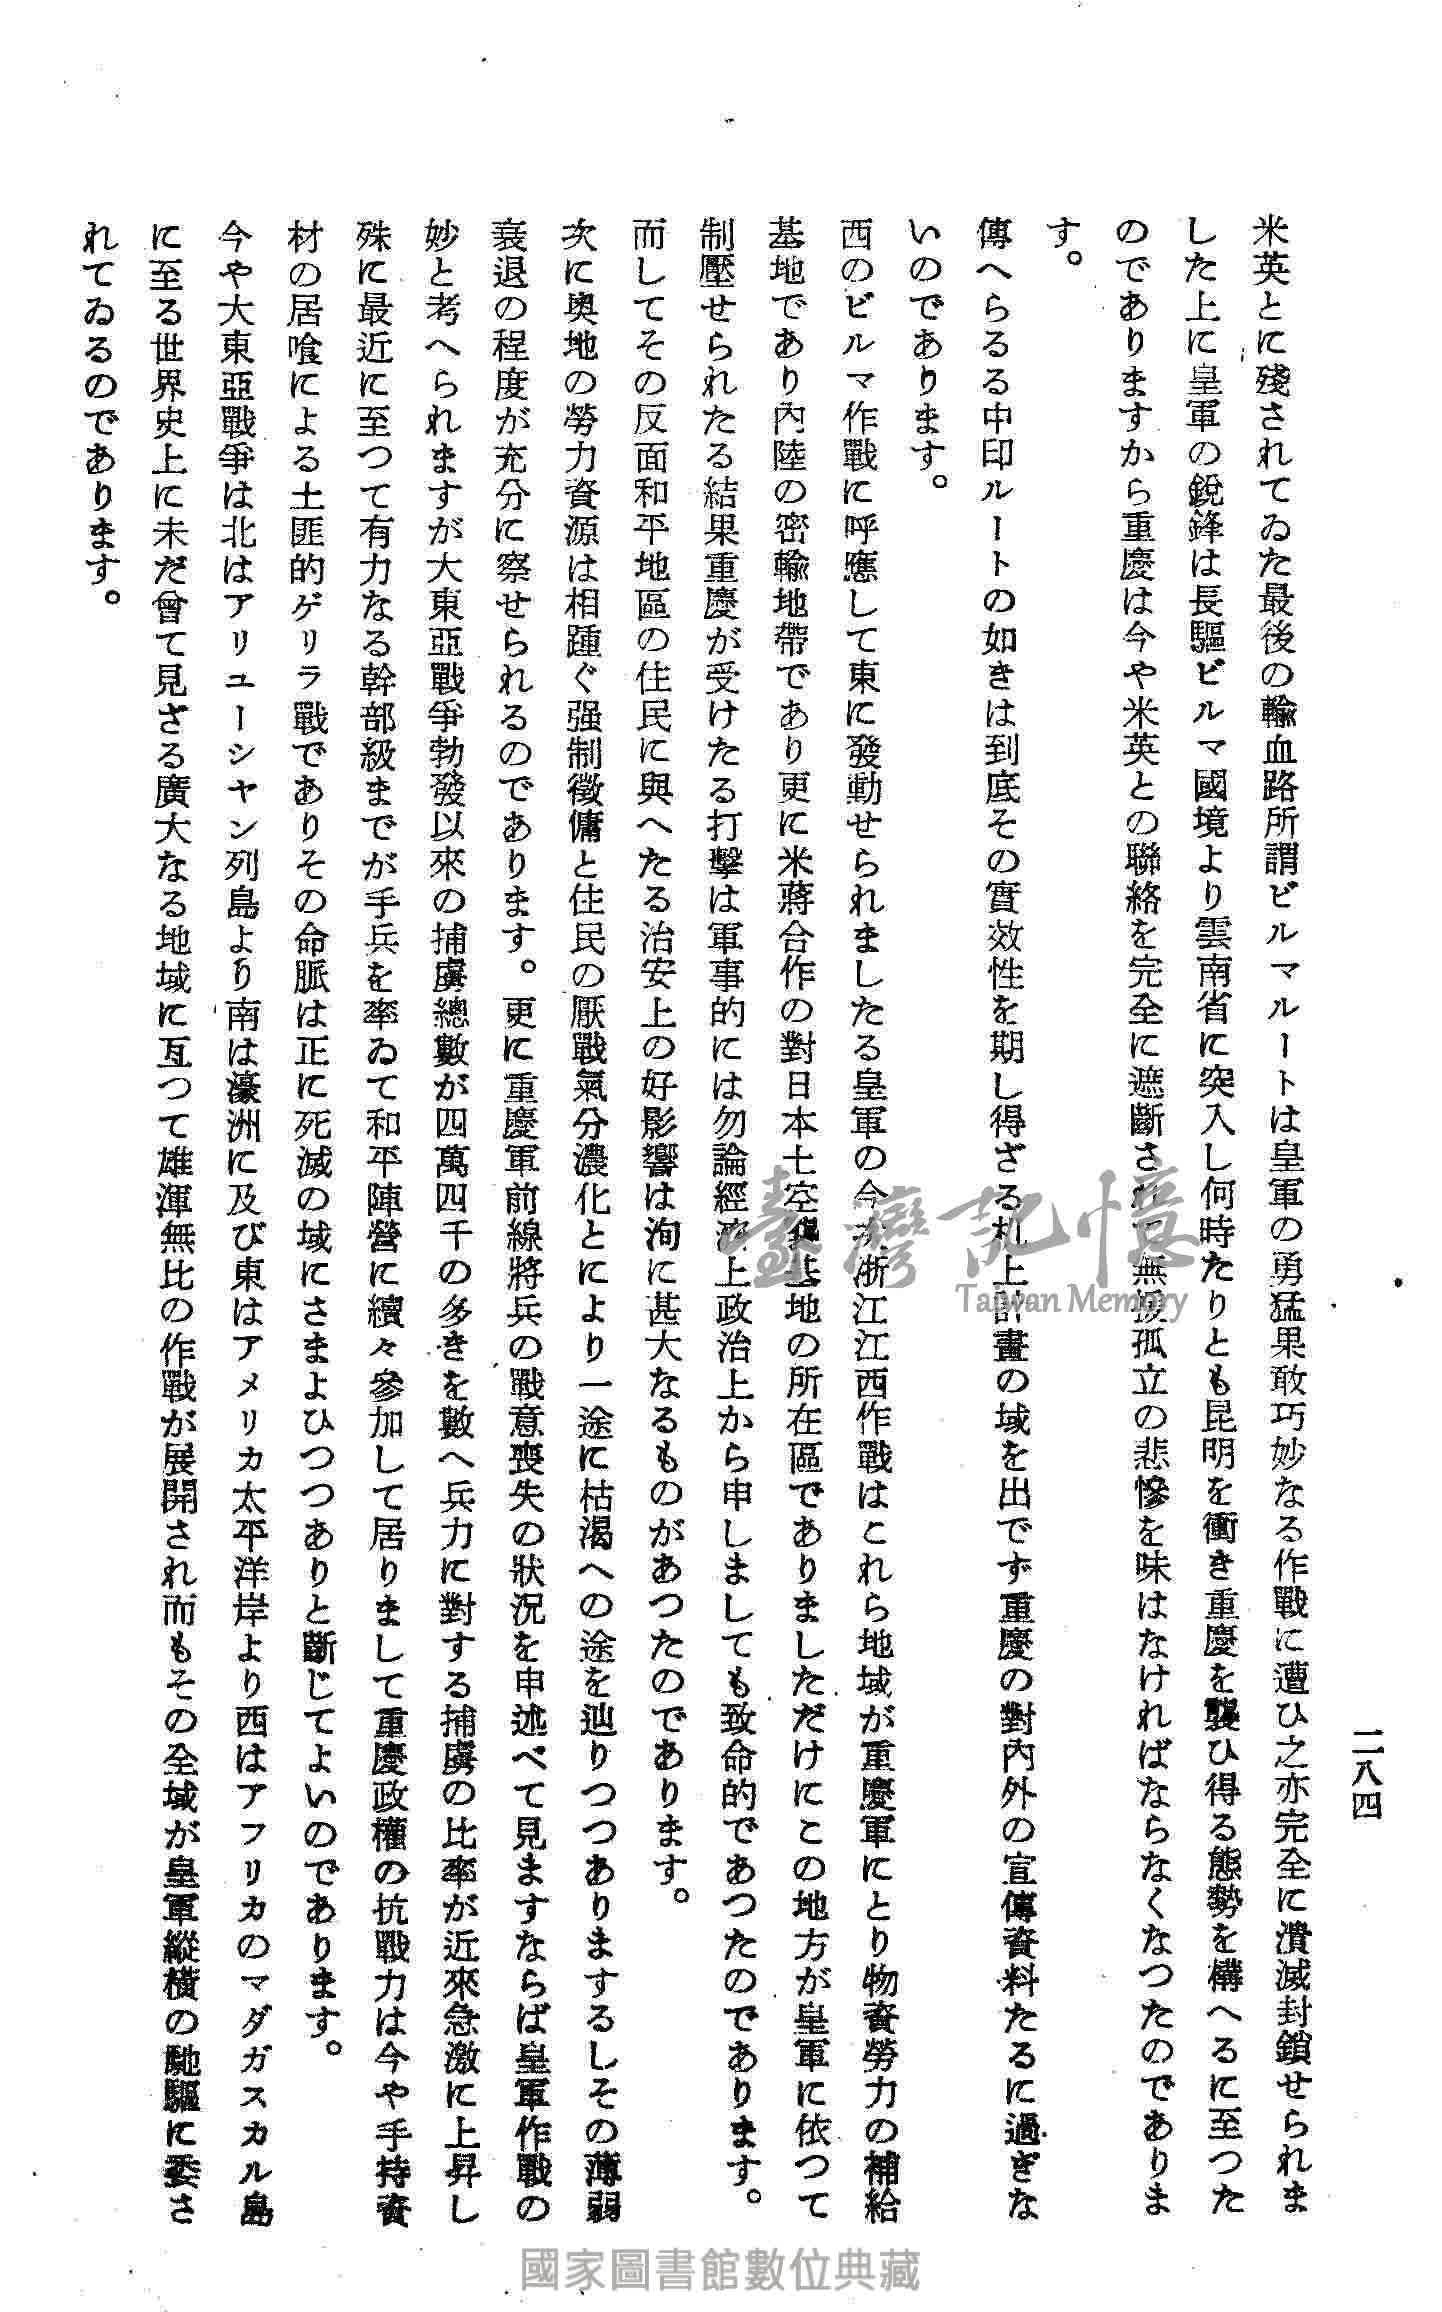 二八四
米英とに殘されてゐた最後の輸血路所謂ビルマルートは皇軍の勇猛果敢巧妙なる作戰に遭ひ之亦完全に潰滅封鎖せられま
した上に皇軍の銳鋒は長驅ビルマ國境より雲南省に突入し何時たりとも昆明を衝き重慶を襲ひ得る態勢を構へるに至つた
のでありますから重慶は今や米英との聯絡を完全に遮斷されて無援孤立の悲慘を味はなければならなくなつたのでありま
す。
傳へらるる中印ルートの如きは到底その實效性を期し得ざる札上計畫の域を出でず重慶の對內外の宣傳資料たるに過ぎな
いのであります。
西のビルマ作戰に呼應して東に發動せられましたる皇軍の今次浙江江西作戰はこれら地域が重慶軍にとり物資勞力の補給
基地であり內陸の密輸地帶であり更に米蔣合作の對日本土空襲基地の所在區でありましただけにこの地方が皇軍に依つて
制壓せられたる結果重慶が受けたる打擊は軍事的には勿論經濟上政治上から申しましても致命的であつたのであります。
而してその反面和平地區の住民に與へたる治安上の好影響は洵に甚大なるものがあつたのであります。
次に奧地の勞力資源は相踵ぐ强制徵傭と住民の厭戰氣分濃化とにより一途に枯渴への途を辿りつつありまするしその薄弱
衰退の程度が充分に察せられるのであります。更に重慶軍前線將兵の戰意喪失の狀況を申述べて見ますならば皇軍作戰の
妙と考へられますが大東亞戰爭勃發以來の捕虜總數が四萬四千の多きを數へ兵力に對する捕虜の比率が近來急激に上昇し
殊に最近に至つて有力なる幹部級までが手兵を率ゐて和平陣營に續々參加して居りまして重慶政權の抗戰力は今や手持資
材の居喰による土匪的ゲリラ戰でありその命脈は正に死滅の域にさまよひつつありと斷じてよいのであります。
今や大東亞戰爭は北はアリユーシヤン列島より南は濠洲に及び東はアメリカ太平洋岸より西はアフリカのマダガスカル島
に至る世界史上に未だ曾て見ざる廣大なる地域に亙つて雄渾無比の作戰が展開され而もその全域が皇軍縱橫の馳驅に委さ
れてゐるのであります。
臺灣記憶
Taiwan Memory
國家圖書館數位典藏